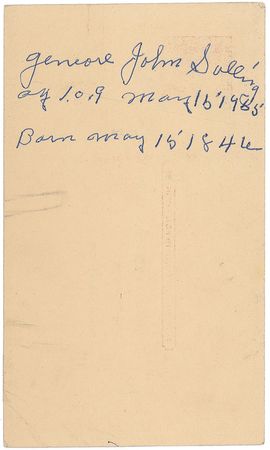 geneorl John Salling
ag 1.0.9 may 15' 1955
Born may 15' 1846